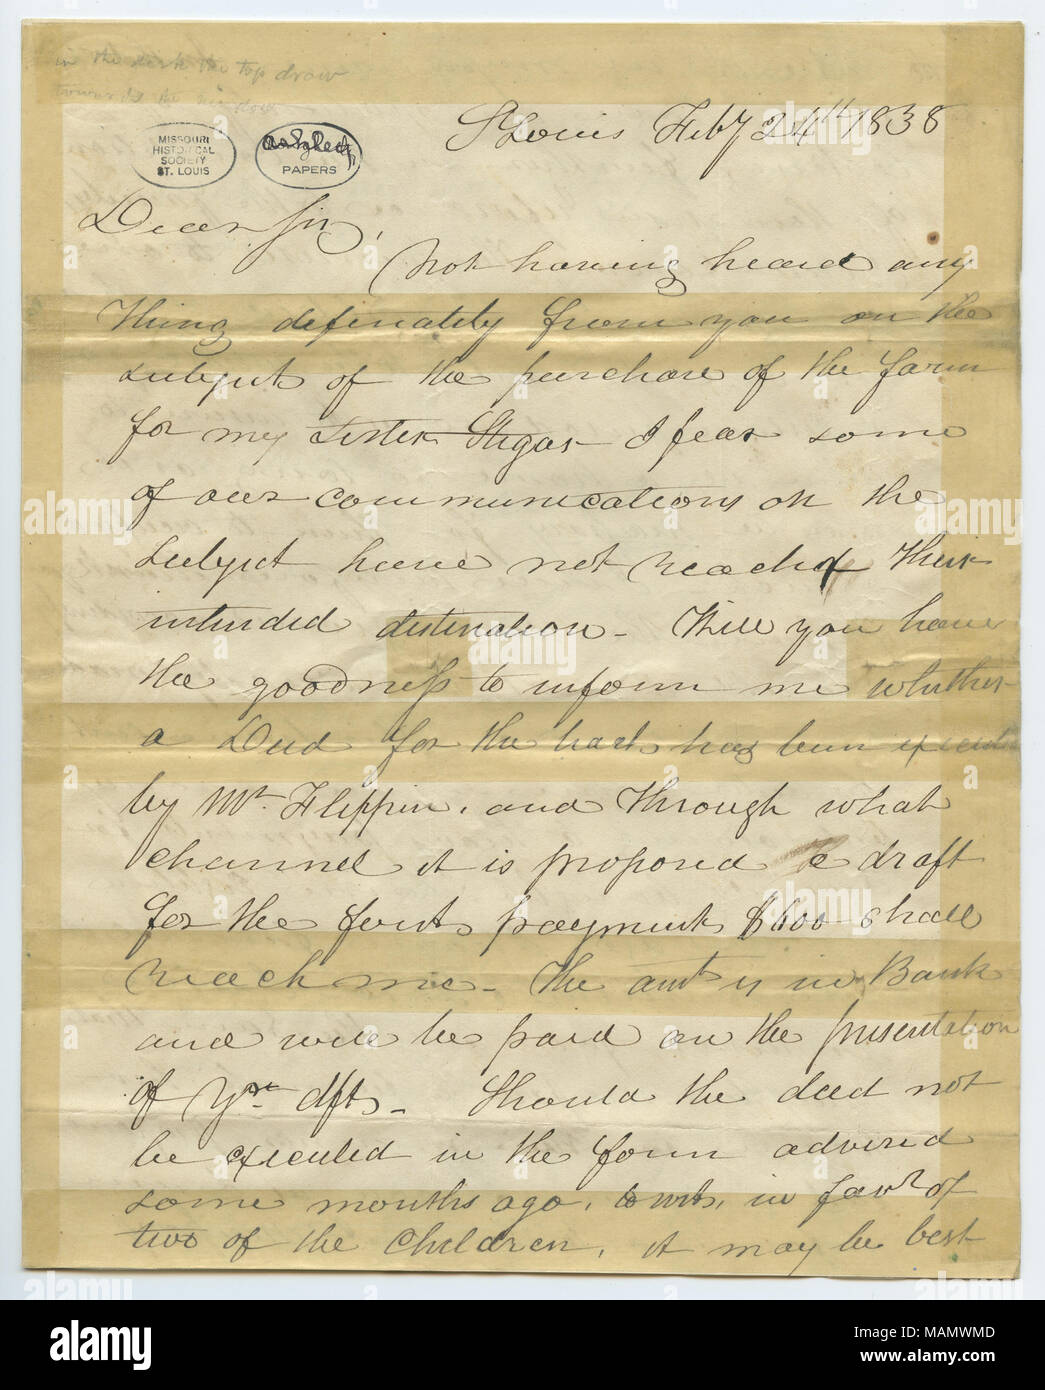 in the desk the top draw
towards the window
MISSOURI
HISTORICAL
SOCIETY
ST. LOUIS
Ashley
PAPERS
St Louis Feby 24th 1838
Dear Sir,
Not having heard any
thing definately from you on the
subject of the purchase of the farm
for my Sister Stigar I fear some
of our communications on the
subject have not reached their
intended destination - Will you have
the goodness to inform me whether
a Deed for the has been execut
by Mr. Flippin, and through what
channel it is proposed a draft
for the first payment $600 shall
reach me - The amt is in Bank
and will be paid on the presentation
of Yr dft - Should the deed not
be executed in the form advised
some months ago, to wit, in favr of
two of the Children, it may be best
alamy
MAMWMD
www.alamy.com